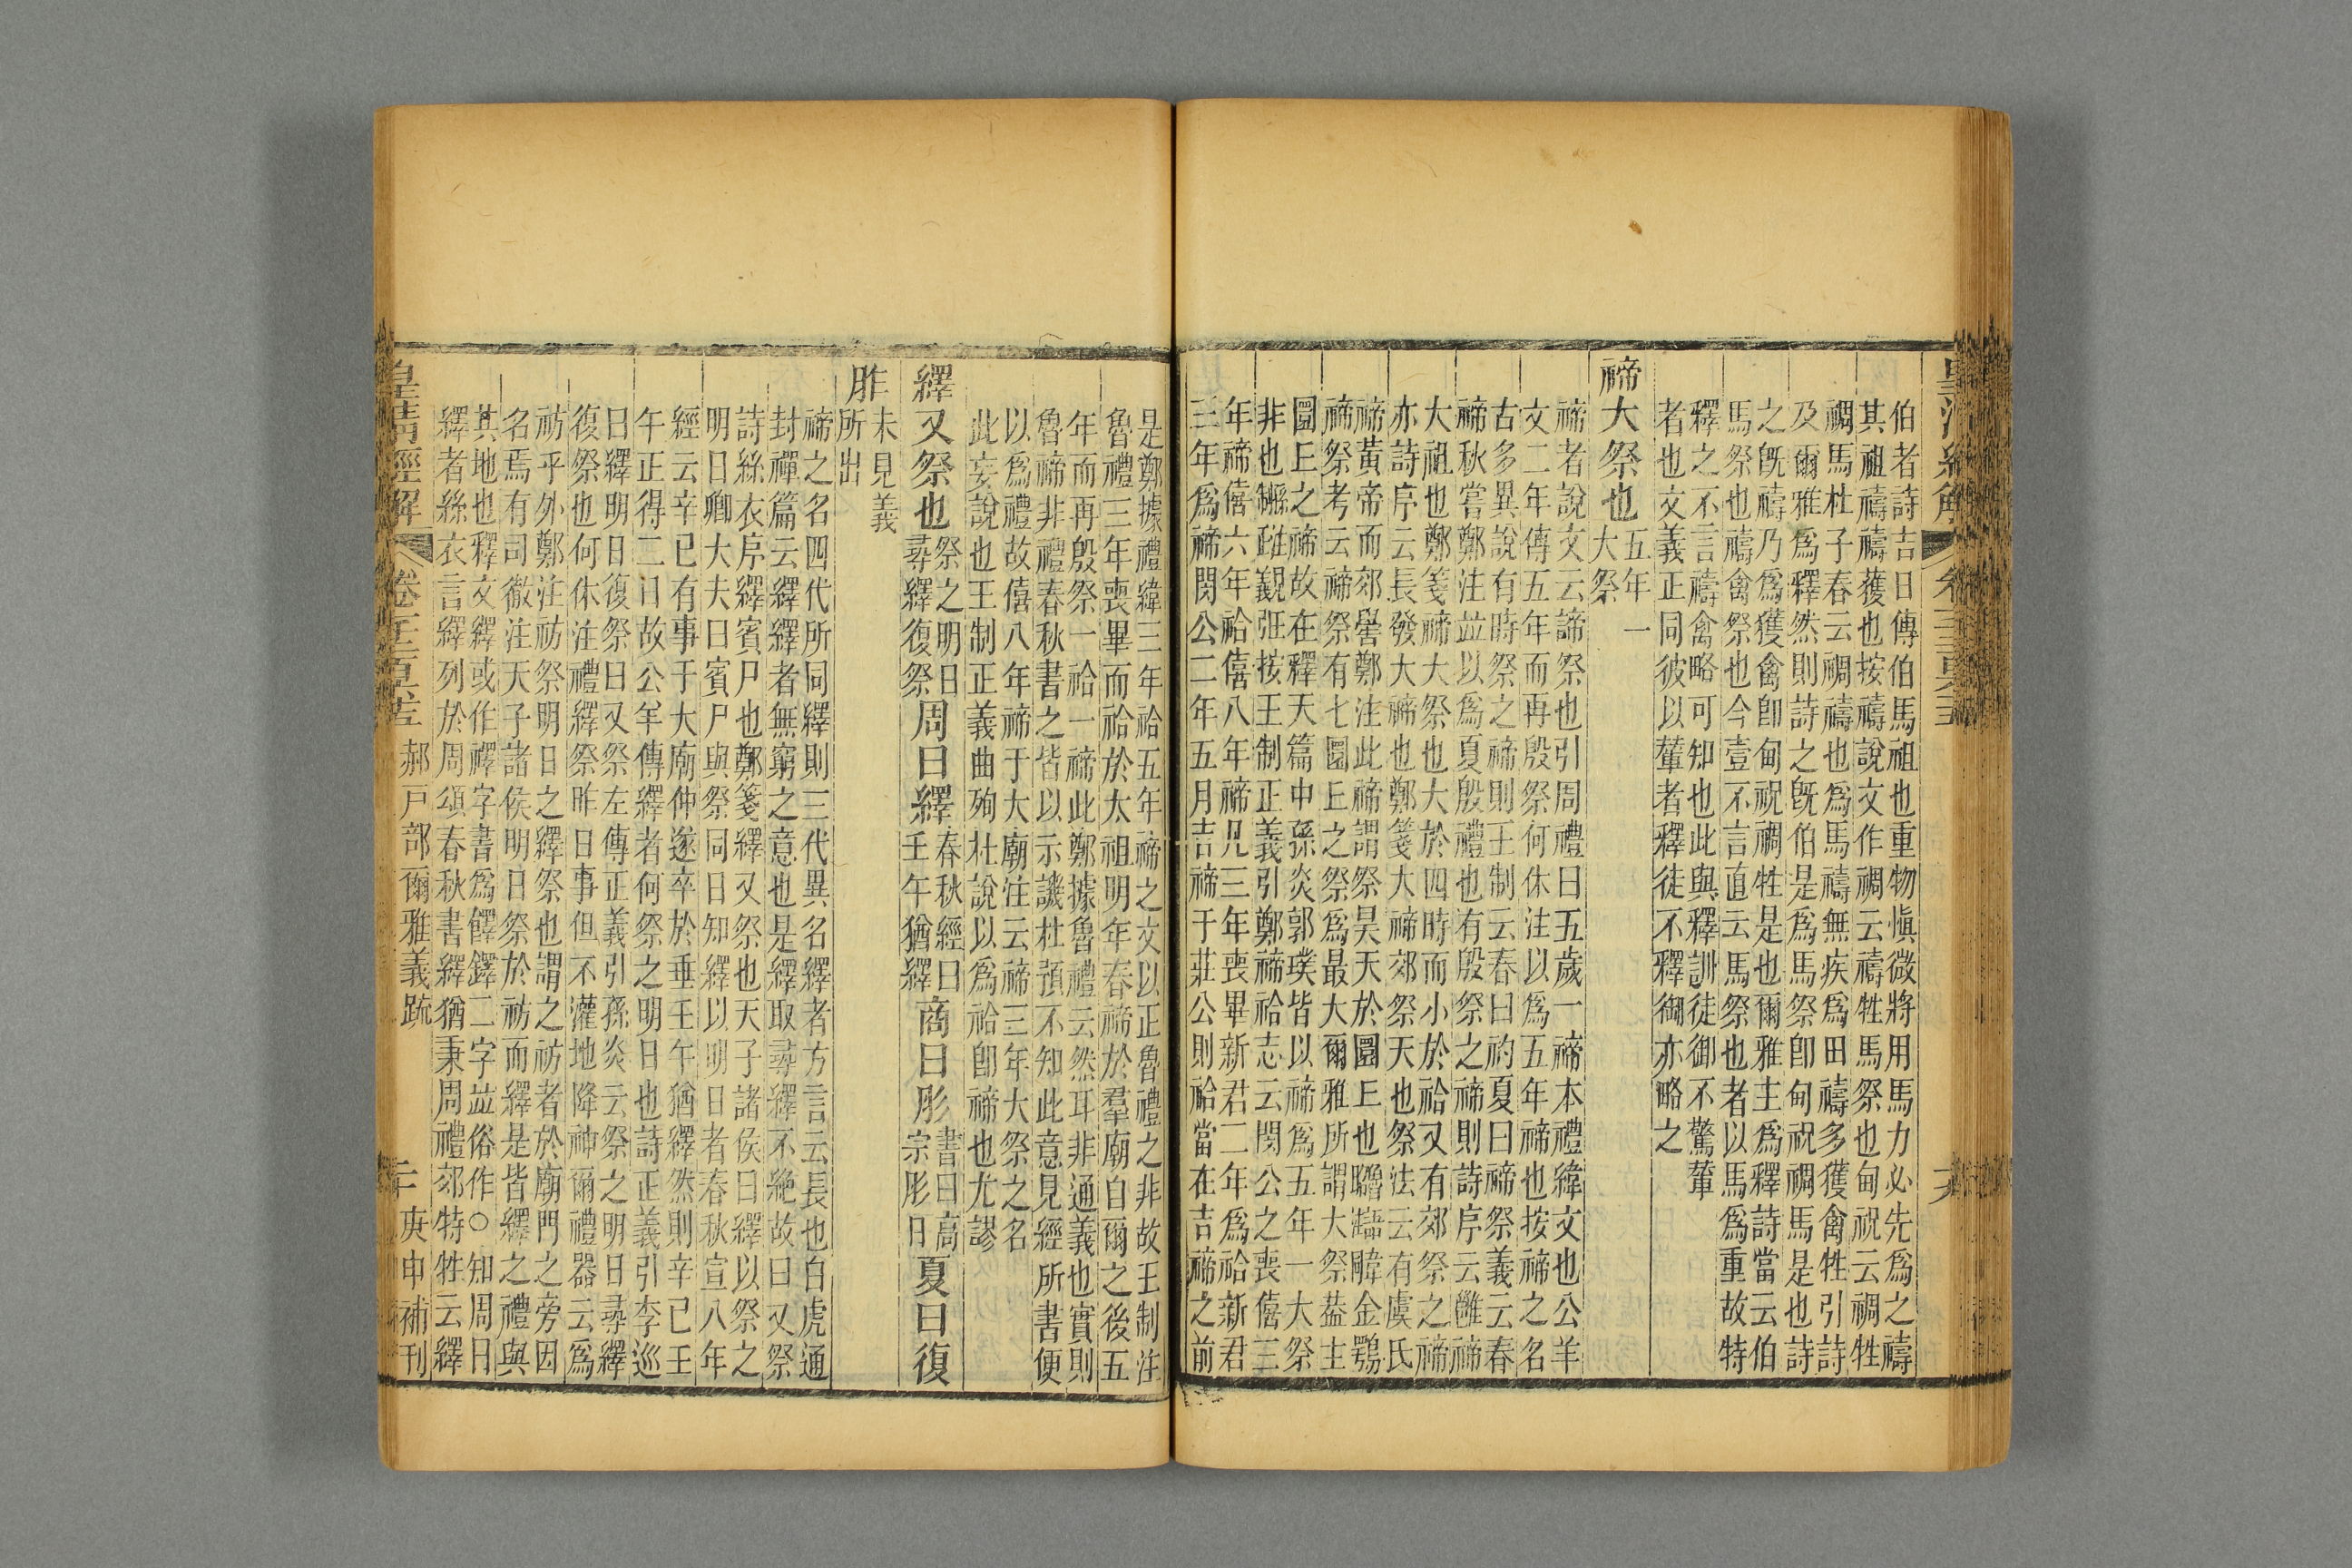 皇清經解
伯者詩吉日傳伯馬祖也重物愼微將用馬力必先爲之禱
其祖禱禱獲也按禱說文作禂云禱牲馬祭也甸祝云禂牲
禂馬杜子春云禂禱也爲馬禱無疾爲田禱多獲禽牲引詩
及爾雅爲釋然則詩之旣伯是爲馬祭卽甸祝禂馬是也詩
之旣禱乃爲獲禽卽甸祝禂牲是也爾雅主爲釋詩當云伯
馬祭也禱禽祭也今壹不言直云馬祭也者以馬爲重故特
釋之不言禱禽略可知也此與釋訓徒御不驚輦
者也文義正同彼以輦者釋徒不釋御亦略之
禘大祭也五年一
大祭
禘者說文云諦祭也引周禮曰五歲一禘本禮緯文也公羊
文二年傳五年而再殷祭何休注以爲五年禘也按禘之名
古多異說有時祭之禘則王制云春曰礿夏曰禘祭義云春
禘秋嘗鄭注竝以爲夏殷禮也有殷祭之禘則詩序云雝禘
大祖也鄭箋禘大祭也大於四時而小於祫又有郊祭之禘
亦詩序云長發大禘也鄭箋大禘郊祭天也祭法云有虞氏
禘黃帝而郊嚳鄭注此禘謂祭昊天於圜丘也
禘祭考云禘祭有七圜丘之祭爲最大爾雅所謂大祭葢主
圜丘之禘故在釋天篇中孫炎郭璞皆以禘爲五年一大祭
非也按王制正義引鄭禘祫志云閔公之喪僖三
年禘僖六年祫僖八年禘凡三年喪畢新君二年爲祫新君
三年爲禘閔公二年五月吉禘于莊公則祫當在吉禘之前
是鄭據禮緯三年祫五年禘之文以正魯禮之非故王制注
魯禮三年喪畢而祫於太祖明年春禘於羣廟自爾之後五
年而再殷祭一祫一禘此鄭據魯禮云然耳非通義也實則
魯禘非禮春秋書之皆以示譏杜預不知此意見經所書便
以爲禮故僖八年禘于大廟注云禘三年大祭之名
此妄說也王制正義曲殉杜說以爲祫卽禘也尤謬
繹又祭也祭之明日
尋繹復祭周曰繹春秋經曰
壬午猶繹商曰肜書曰高
宗肜日夏曰復
胙未見義
所出
禘之名四代所同繹則三代異名繹者方言云長也白虎通
封禪篇云繹繹者無窮之意也是繹取尋繹不絶故曰又祭
詩絲衣序繹賓尸也鄭箋繹又祭也天子諸侯曰繹以祭之
明日卿大夫曰賓尸與祭同日知繹以明日者春秋宣八年
經云辛巳有事于大廟仲遂卒於垂壬午猶繹然則辛巳壬
午正得二日故公羊傳繹者何祭之明日也詩正義引李巡
曰繹明日復祭曰又祭左傳正義引孫炎云祭之明日尋繹
復祭也何休注禮繹祭昨日事但不灌地降神爾禮器云爲
祊乎外鄭注祊祭明日之繹祭也謂之祊者於廟門之旁因
名焉有司徹注天子諸侯明日祭於祊而繹是皆繹之禮與
其地也釋文繹或作襗字書爲䭞鐸二字竝俗作○知周曰
繹者絲衣言繹列於周頌春秋書繹猶秉周禮郊特牲云繹
皇清經解 郝戶部爾雅義疏 二十 庚申補刊